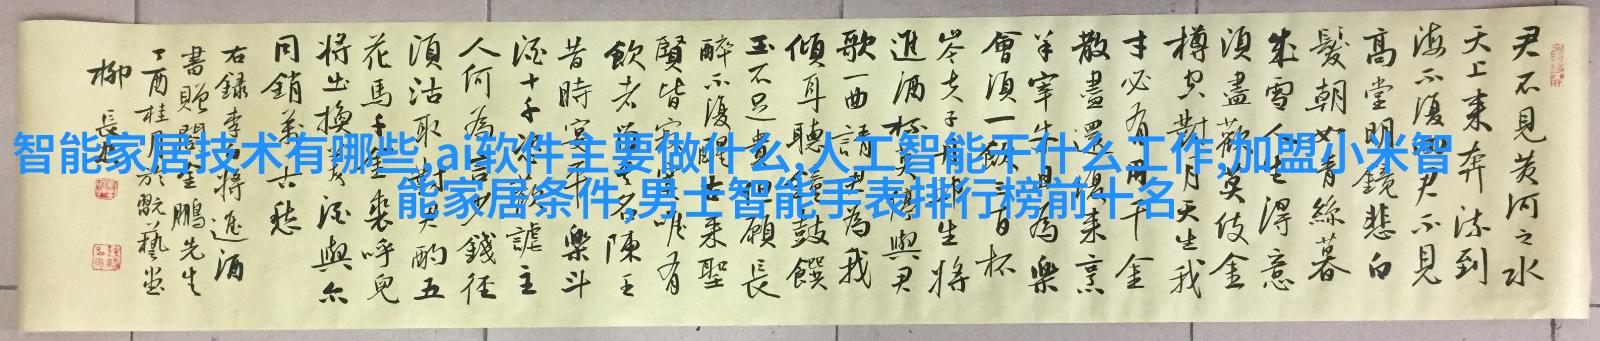 君不見黄河之水
天上来奔流到
海不復回君不見
高堂明鏡悲白
髮朝如青絲暮
成雪人生得意
須盡歡莫使金
樽空對月天生我
才必有用千金
散盡還復来烹
羊宰牛且為樂
會須一飲三百杯
岑夫子丹丘生將
進酒杯莫停與君
歌一曲請君為我
傾耳聽鐘鼓饌
玉不足貴但願長
醉不復醒古来聖
賢皆寂寞唯有
飲者留其名陳王
昔時宴平樂斗
酒十千恣歡謔主
人何為言少錢径
須沽取對君酌五
花馬千金裘呼兒
將出換美酒與尔
同銷萬古愁
右録李白將進酒
書贈閻金鵬先生
丁酉桂月於翫藝堂
柳長
智能家居技术有哪些,ai软件主要做什么,人工智能干什么工作,加盟小米智
能家居条件,男士智能手表排行榜前十名